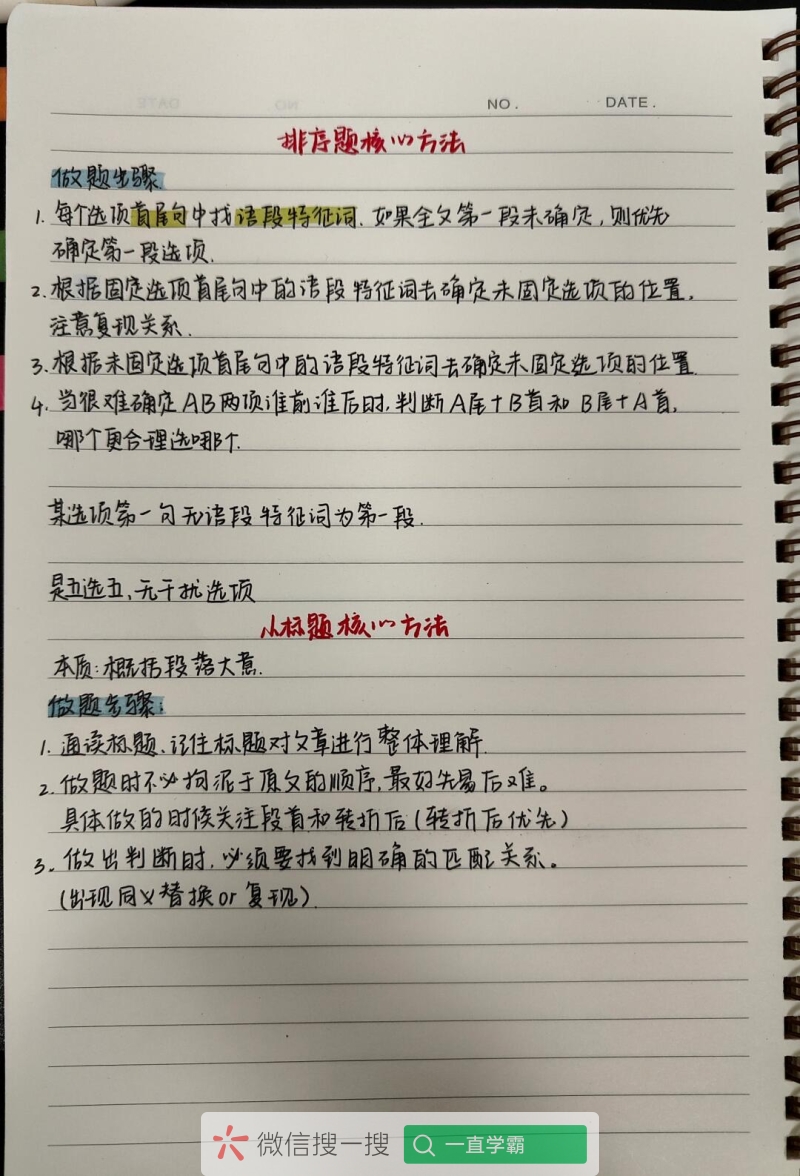 NO. DATE.
排序题核心方法
做题步骤
1. 每个选项首尾句中找语段特征词. 如果全文第一段未确定, 则优先
确定第一段选项.
2. 根据固定选项首尾句中的语段特征词去确定未固定选项的位置.
注意复现关系.
3. 根据未固定选项首尾句中的语段特征词去确定未固定选项的位置
4. 当很难确定AB两项谁前谁后时, 判断A尾+B首和 B尾+A首,
哪个更合理选哪个.
某选项第一句无语段特征词为第一段.
是五选五, 无干扰选项
小标题核心方法
本质: 概括段落大意.
做题步骤:
1. 通读标题、记住标题对文章进行整体理解
2. 做题时不必拘泥于原文的顺序, 最好先易后难。
具体做的时候关注段首和转折后(转折后优先)
3. 做出判断时, 必须要找到明确的匹配关系。
(出现同义替换or复现)
微信搜一搜 一直学霸